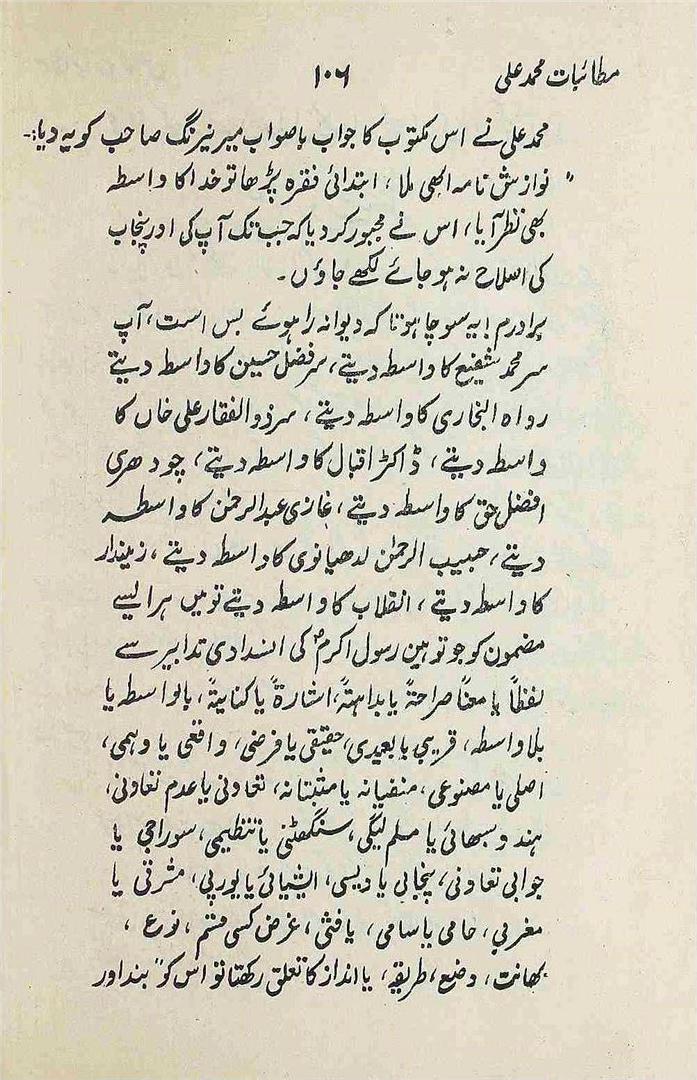 مطائبات محمد علی
۱۰۶
محمد علی نے اس مکتوب کا جواب باصواب میر نیرنگ صاحب کو یہ دیا:۔
" نوازش نامہ ابھی ملا، ابتدائی فقرہ پڑھا تو خدا کا واسطہ
بھی نظر آیا، اس نے مجبور کر دیا کہ جب تک آپ کی اور پنجاب
کی اصلاح نہ ہو جائے لکھے جاؤں۔
برادرم! یہ سوچا ہوتا کہ دیوانہ را ہوئے بس است، آپ
سر محمد شفیع کا واسطہ دیتے، سر فضل حسین کا واسطہ دیتے
رواہ البخاری کا واسطہ دیتے، سر ذوالفقار علی خاں کا
واسطہ دیتے، ڈاکٹر اقبال کا واسطہ دیتے، چودھری
افضل حق کا واسطہ دیتے، غازی عبدالرحمٰن کا واسطہ
دیتے، حبیب الرحمٰن لدھیانوی کا واسطہ دیتے، زمیندار
کا واسطہ دیتے، انقلاب کا واسطہ دیتے تو میں ہر ایسے
مضمون کو جو توہین رسول اکرمؐ کی انسدادی تدابیر سے
لفظاً یا معناً صراحتہً یا بداہتہً، اشارۃً یا کنایتہً، بالواسطہ یا
بلاواسطہ، قریبی یا بعیدی، حقیقی یا فرضی، واقعی یا وہمی،
اصلی یا مصنوعی، منفیانہ یا مثبتانہ، تعاونی یا عدم تعاونی،
ہندو سبھائی یا مسلم لیگی، سنگھٹنی یا تنظیمی، سوراجی یا
جوابی تعاونی، پنجابی یا دیسی، ایشیائی یا یورپی، مشرقی یا
مغربی، حامی یا سامی، یافثی، غرض کسی قسم، نوع،
بھانت، وضع، طریقہ، یا انداز کا تعلق رکھتا تو اس کو "بند اور